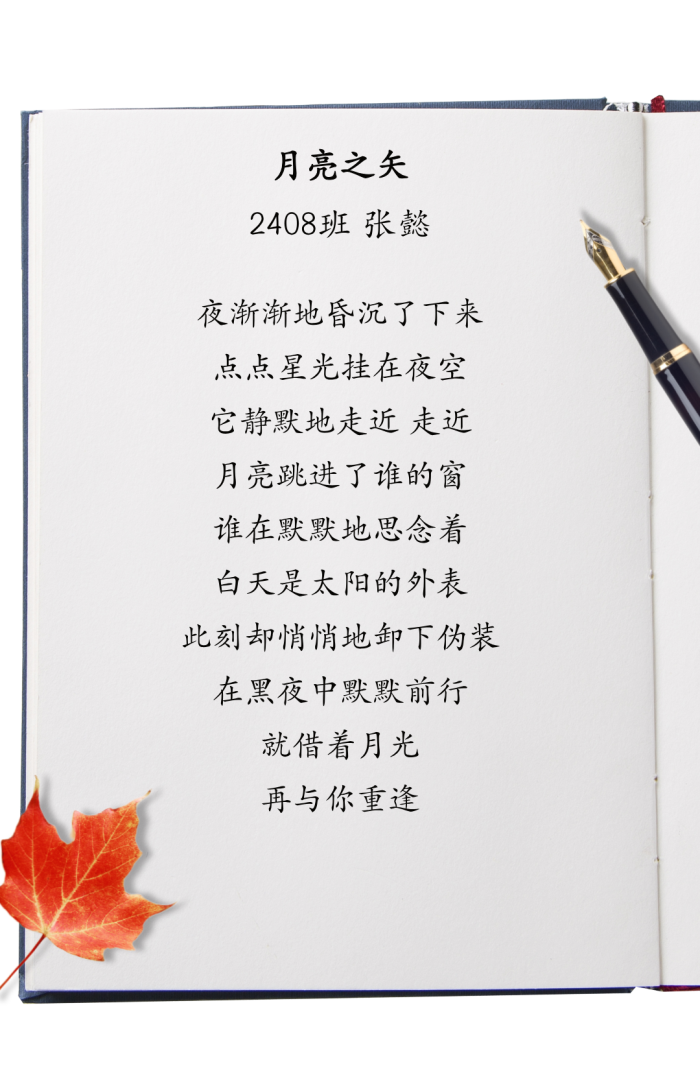 月亮之矢
2408班 张懿
夜渐渐地昏沉了下来
点点星光挂在夜空
它静默地走近 走近
月亮跳进了谁的窗
谁在默默地思念着
白天是太阳的外表
此刻却悄悄地卸下伪装
在黑夜中默默前行
就借着月光
再与你重逢